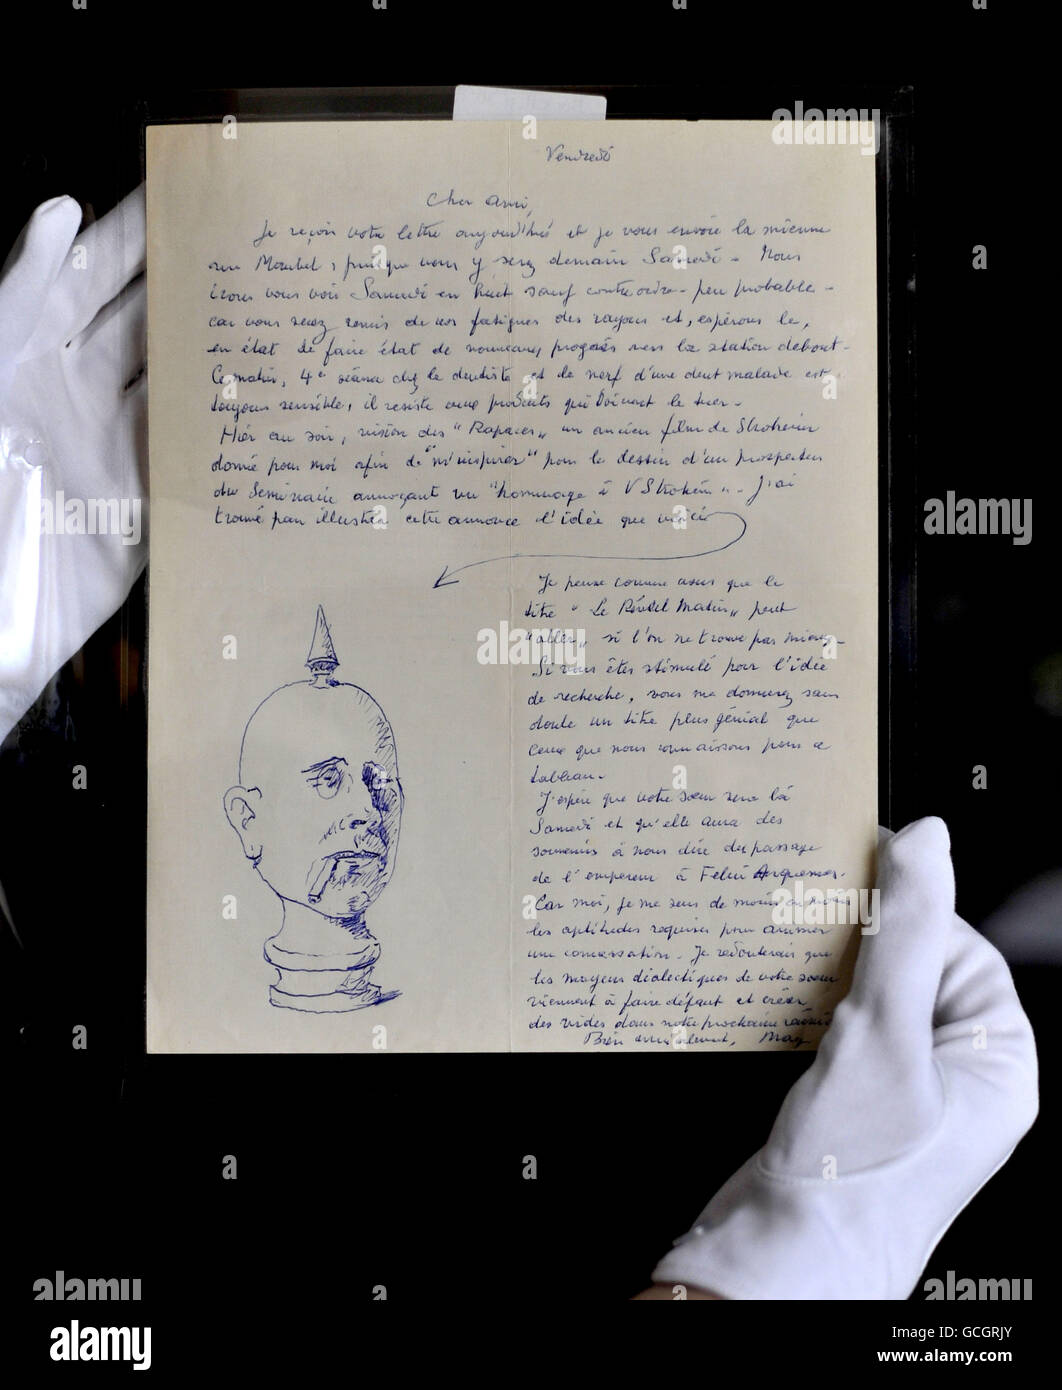 Vendredi
Cher Ami,
Je reçois votre lettre aujourd'hui et je vous envoie la mienne
puisque vous y serez demain Samedi - Nous
irons vous voir Samedi en huit sauf contre ordre - peu probable -
car vous serez remis de vos fatigues des rayons et, espérons le,
en état de faire état de nouveaux progrès vers la station debout -
Ce matin, 4e séance chez le dentiste et le nerf d'une dent malade est
toujours sensible, il resiste aux produits qui doivent le tuer -
Hier au soir, vision des "Rapaces" un ancien film de Stroheim
donné pour moi afin de "m'inspirer" pour le dessin d'un prospectus
du Seminaire annonçant un "hommage à V Stroheim" - J'ai
trouvé pour illustrer cette annonce l'idée que voici
Je pense comme vous que le
titre "Le Réveil Matin" peut
"aller" si l'on ne trouve pas mieux -
Si vous êtes stimulé pour l'idée
de recherche, vous me donnerez sans
doute un titre plus génial que
ceux que nous connaissons pour ce
tableau -
J'espère que votre sœur sera là
Samedi et qu'elle aura des
souvenirs à nous dire du passage
de l'empereur à
Car moi, je me sens de moins en moins
les aptitudes requises pour animer
une conversation - Je redouterais que
les moyens dialectiques de votre sœur
viennent à faire défaut et créer
des vides dans notre prochaine réunion
Bien amicalement, Mag
alamy
a
alamy stock photo
GCGRJY
www.alamy.com